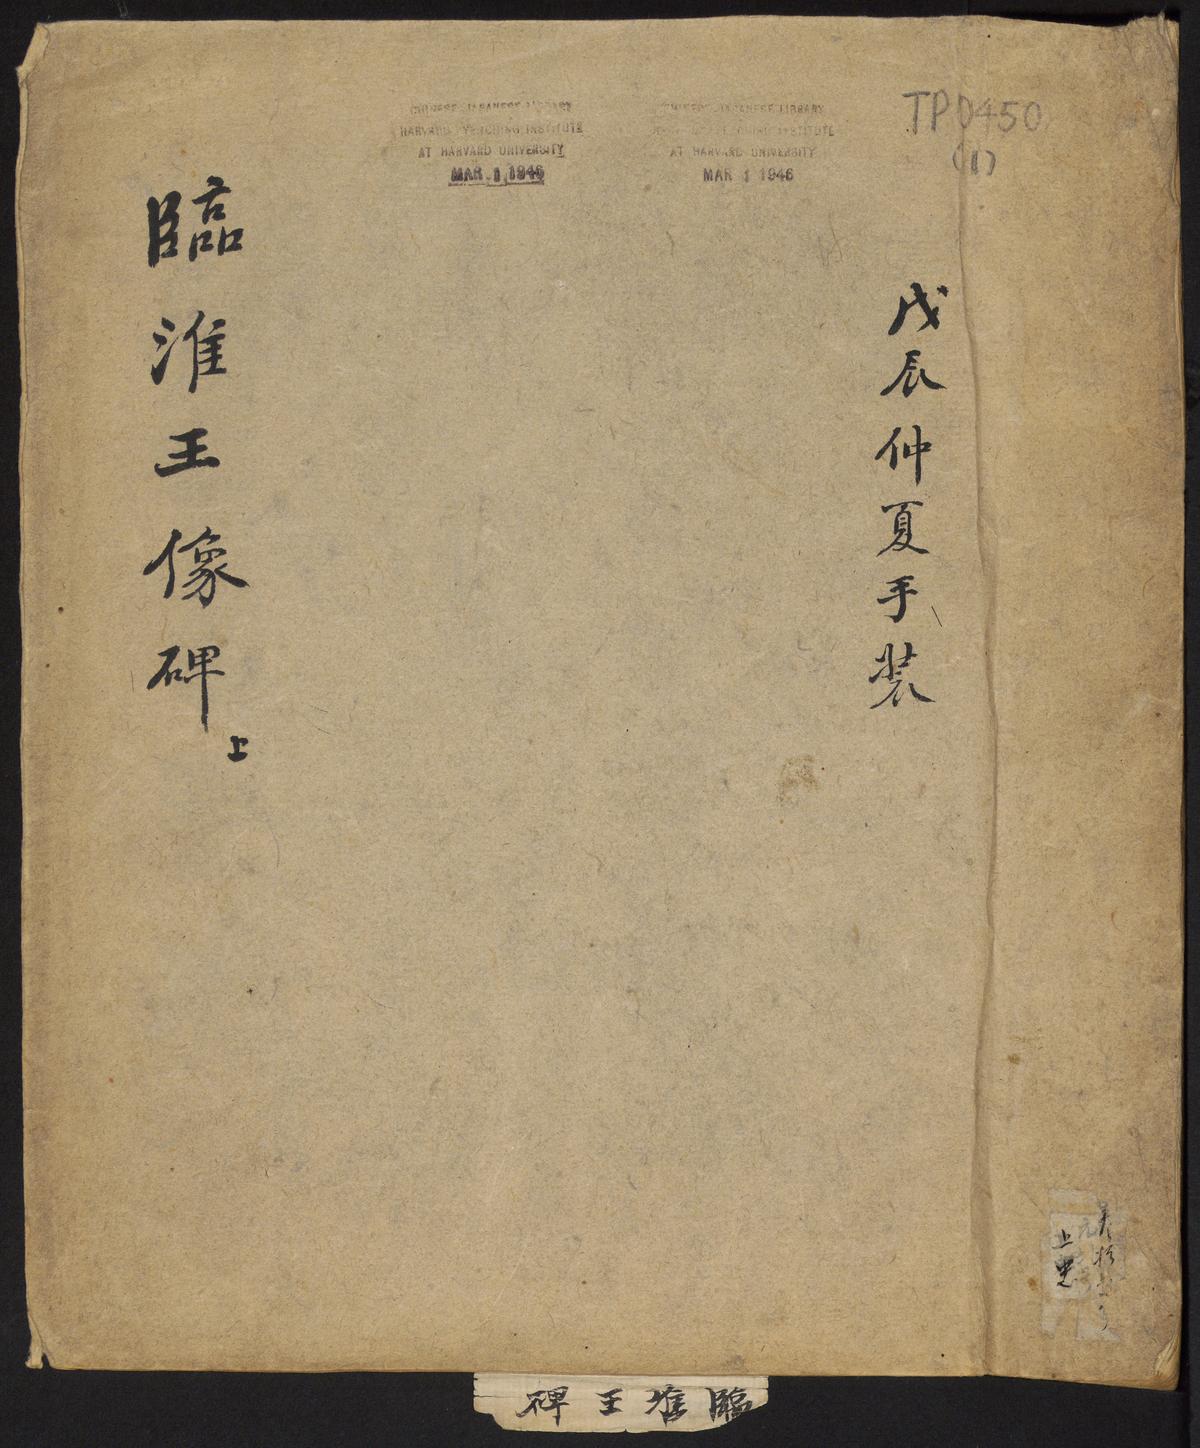 TP 0450
(1)
CHINESE-JAPANESE LIBRARY
HARVARD YENCHING INSTITUTE
AT HARVARD UNIVERSITY
MAR 1 1946
CHINESE JAPANESE LIBRARY
AT HARVARD UNIVERSITY
MAR 1 1946
戊辰仲夏手装
臨淮王像碑
上
臨淮王碑